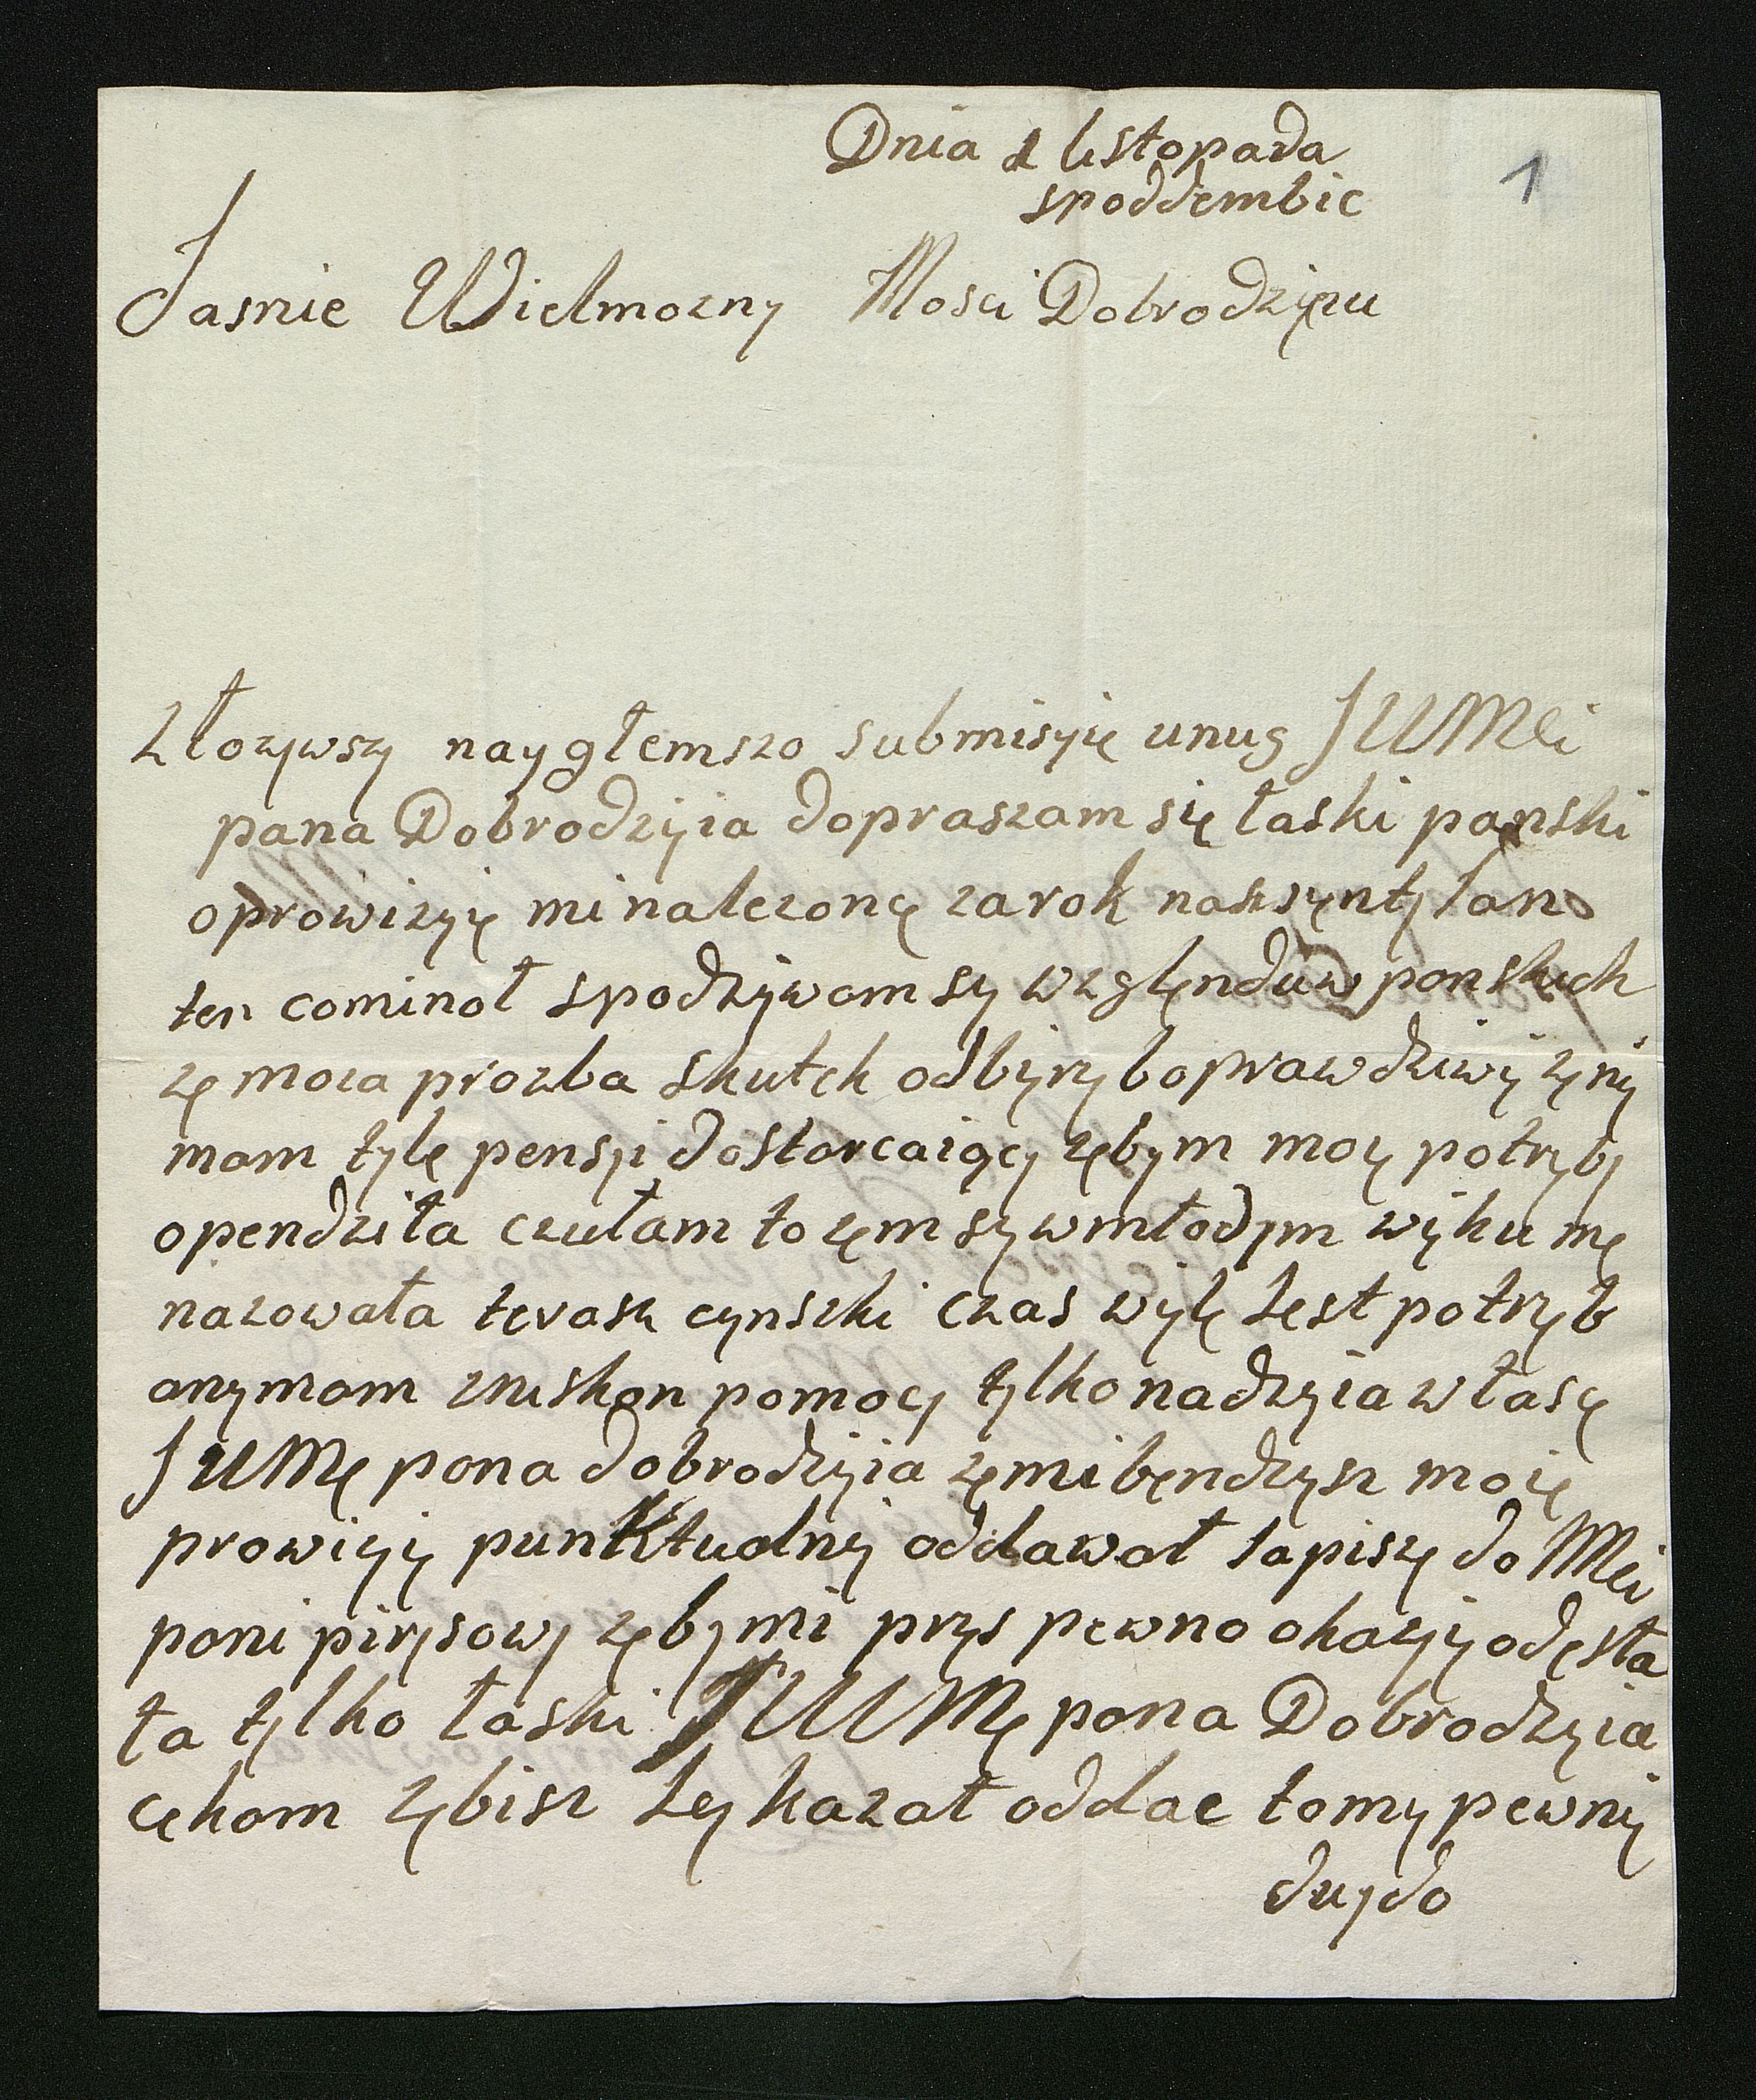 Dnia 1 listopada
spoddembic
1
Jasnie Wielmozny Mosci Dobrodzięiu
Złozywszy naygłemszo submisyię unug JWMCi
pana Dobrodzyia dopraszam się łaski panski
oprowizyię mi nalezonę zarok naswyntyian
ten cominoł spodzywom sy wzglenduw ponskich
zę moia prozba skutek odbyryboprawdziwy zyny
mom tylę pensyi dostarcaiący zębym moy potryby
opendziła czułam to zęm sywmłodym wyku mę
nazowała terasz cynszki czas wyię iest potrzyb
anymom znikon pomocy tylko nadzyia włascę
JWMę pona dobrodzyia zęmibendzysz moię
prowizyi punktualny oddawoł iapiszę do MCi
poni pirysowy zębymi przs pewno okazyi odęsła
ła tylko łaski JWMę pona Dobrodzyia
cękom zębisz iey kazoł oddac tomy pewny
duydo